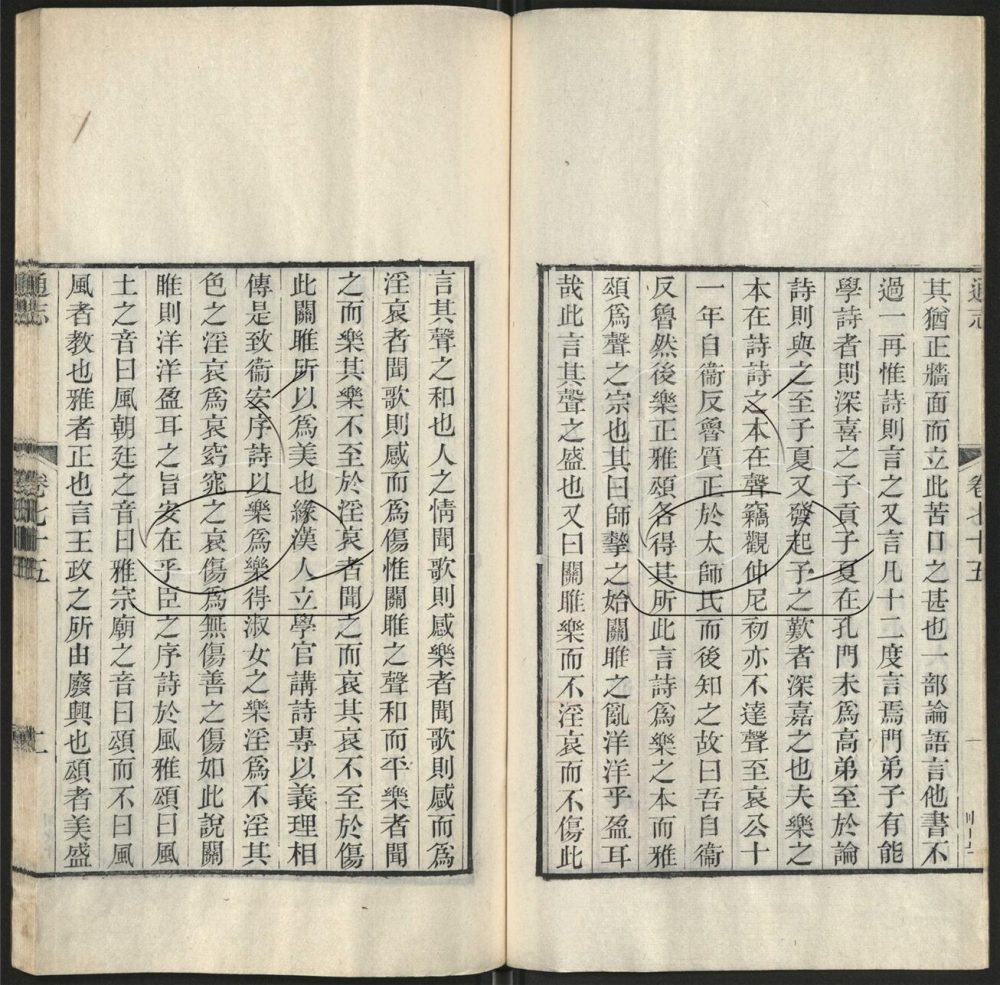 通志
卷七十五
一
其猶正牆面而立此苦口之甚也一部論語言他書不
過一再惟詩則言之又言凡十二度言焉門弟子有能
學詩者則深喜之子貢子夏在孔門未爲高弟至於論
詩則與之至子夏又發起予之歎者深嘉之也夫樂之
本在詩詩之本在聲竊觀仲尼初亦不達聲至哀公十
一年自衞反魯質正於太師氏而後知之故曰吾自衞
反魯然後樂正雅頌各得其所此言詩爲樂之本而雅
頌爲聲之宗也其曰師摯之始關雎之亂洋洋乎盈耳
哉此言其聲之盛也又曰關雎樂而不淫哀而不傷此
言其聲之和也人之情聞歌則感樂者聞歌則感而爲
淫哀者聞歌則感而爲傷惟關雎之聲和而平樂者聞
之而樂其樂不至於淫哀者聞之而哀其哀不至於傷
此關雎所以爲美也緣漢人立學官講詩專以義理相
傳是致衞宏序詩以樂爲樂得淑女之樂淫爲不淫其
色之淫哀爲哀窈窕之哀傷爲無傷善之傷如此說關
雎則洋洋盈耳之旨安在乎臣之序詩於風雅頌曰風
土之音曰風朝廷之音曰雅宗廟之音曰頌而不曰風
風者教也雅者正也言王政之所由廢興也頌者美盛
通志
卷七十五
二